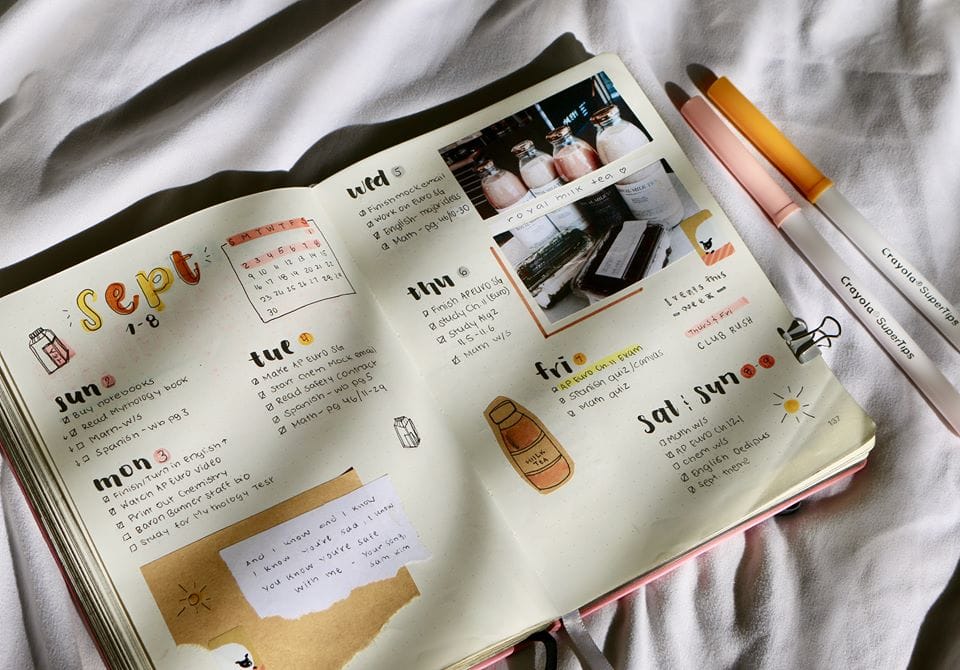 sept
1-8
S M T W T F S
1
2 3 4 5 6 7 8
9 10 11 12 13 14 15
16 17 18 19 20 21 22
23 24 25 26 27 28 29
30
sun 2
Buy notebooks
Read Mythology book
Math-W/S
Spanish - wb pg 3
mon 3
Finish/Turn in English
Watch AP Euro video
Print out Chemistry
Baron Banner Staff bio
Study for Mythology Test
tue 4
Make AP Euro SG
Start Chem Mock Email
Read Safety Contract
Spanish - wb pg 5
Math - pg 46/11-29
And I know and I know
I know you're sad, I know
you know you're safe
with me - your song,
sam kim
wed 5
Finish mock email
Work on Euro SG
English - major ideas
Math - pg 46/10-30
thu 6
Finish AP Euro SG
Study Ch. 11 (Euro)
Study Alg2
11.5-11.6
Math W/S
royal milk tea ♡
fri 7
AP Euro Ch. 11 Exam
Spanish quiz/canvas
Math quiz
MILK
TEA
Events this
week
Thurs & Fri
CLUB RUSH
sat & sun 8 9
Math W/S
AP Euro Ch 12.1
Chem W/S
English
sept. theme
137
Crayola® SuperTips
Crayola® SuperTips